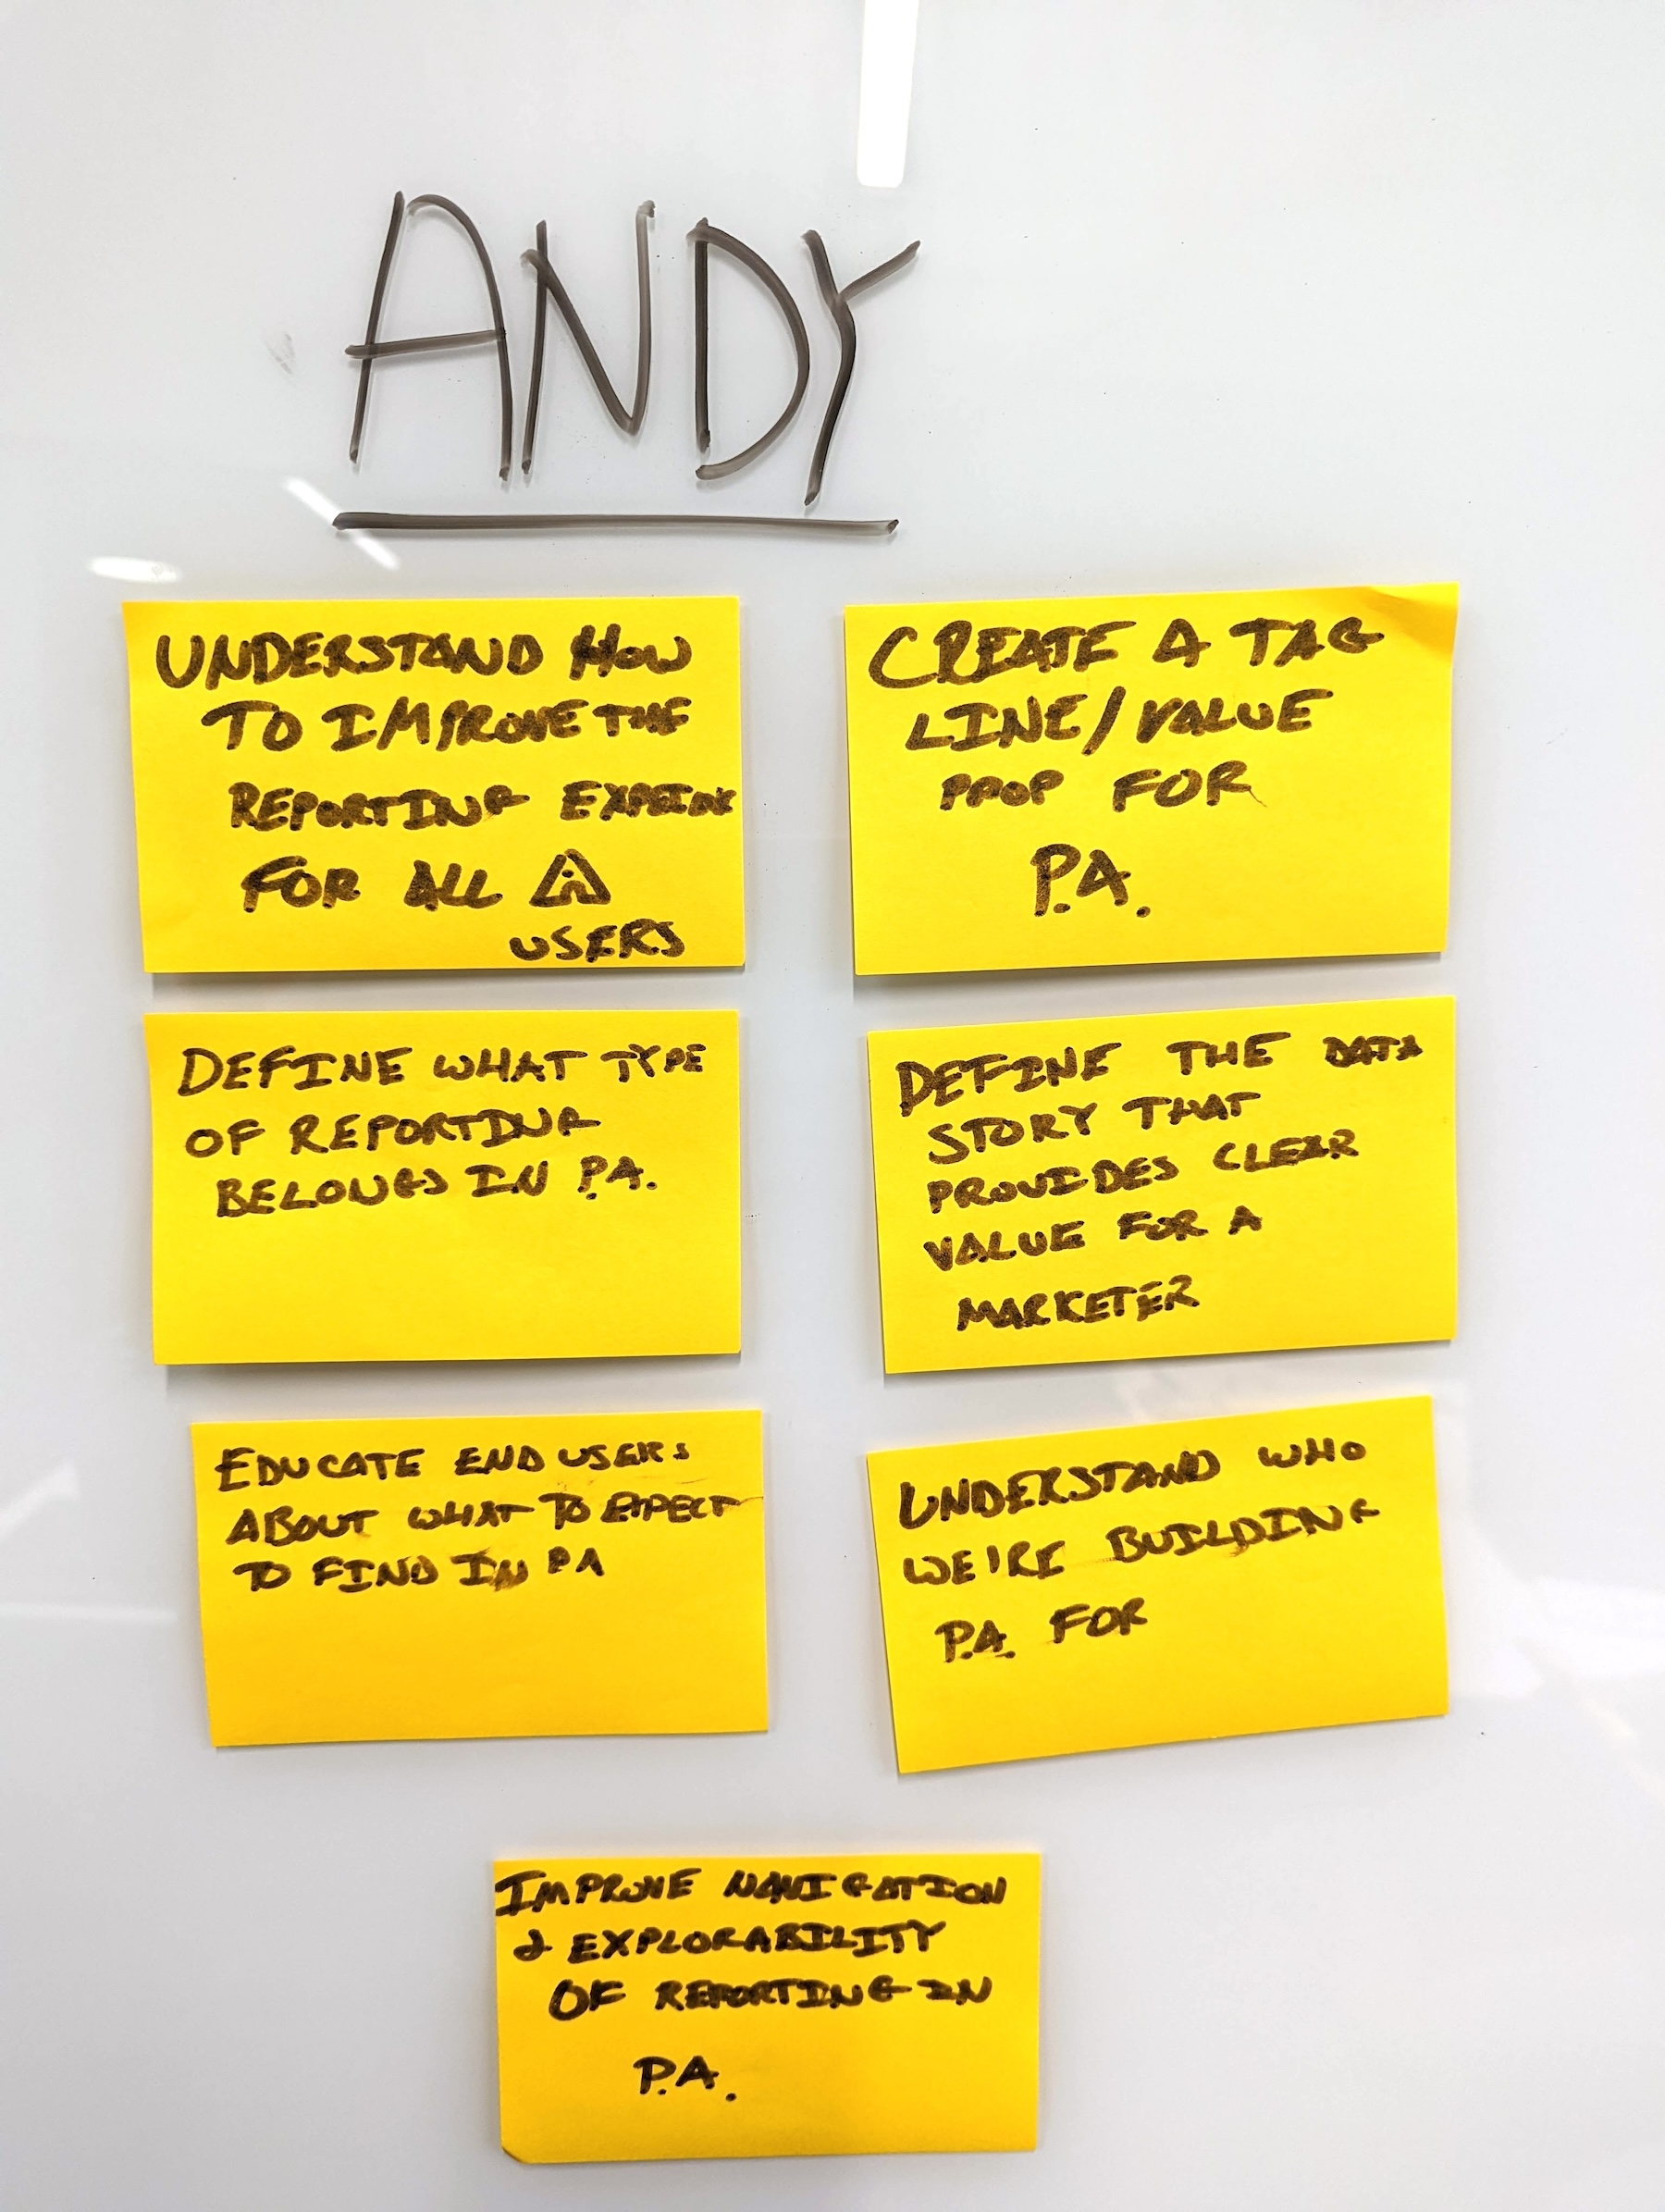 ANDY
UNDERSTAND HOW
TO IMPROVE THE
REPORTING
FOR ALL
USERS
CREATE A TAG
LINE/VALUE
PROP FOR
P.A.
DEFINE WHAT TYPE
OF REPORTING
BELONGS IN P.A.
DEFINE THE DATA
STORY THAT
PROVIDES CLEAR
VALUE FOR A
MARKETER
EDUCATE END USERS
ABOUT WHAT TO EXPECT
TO FIND IN PA
UNDERSTAND WHO
WE'RE BUILDING
P.A. FOR
IMPROVE NAVIGATION
& EXPLORABILITY
OF REPORTING IN
P.A.